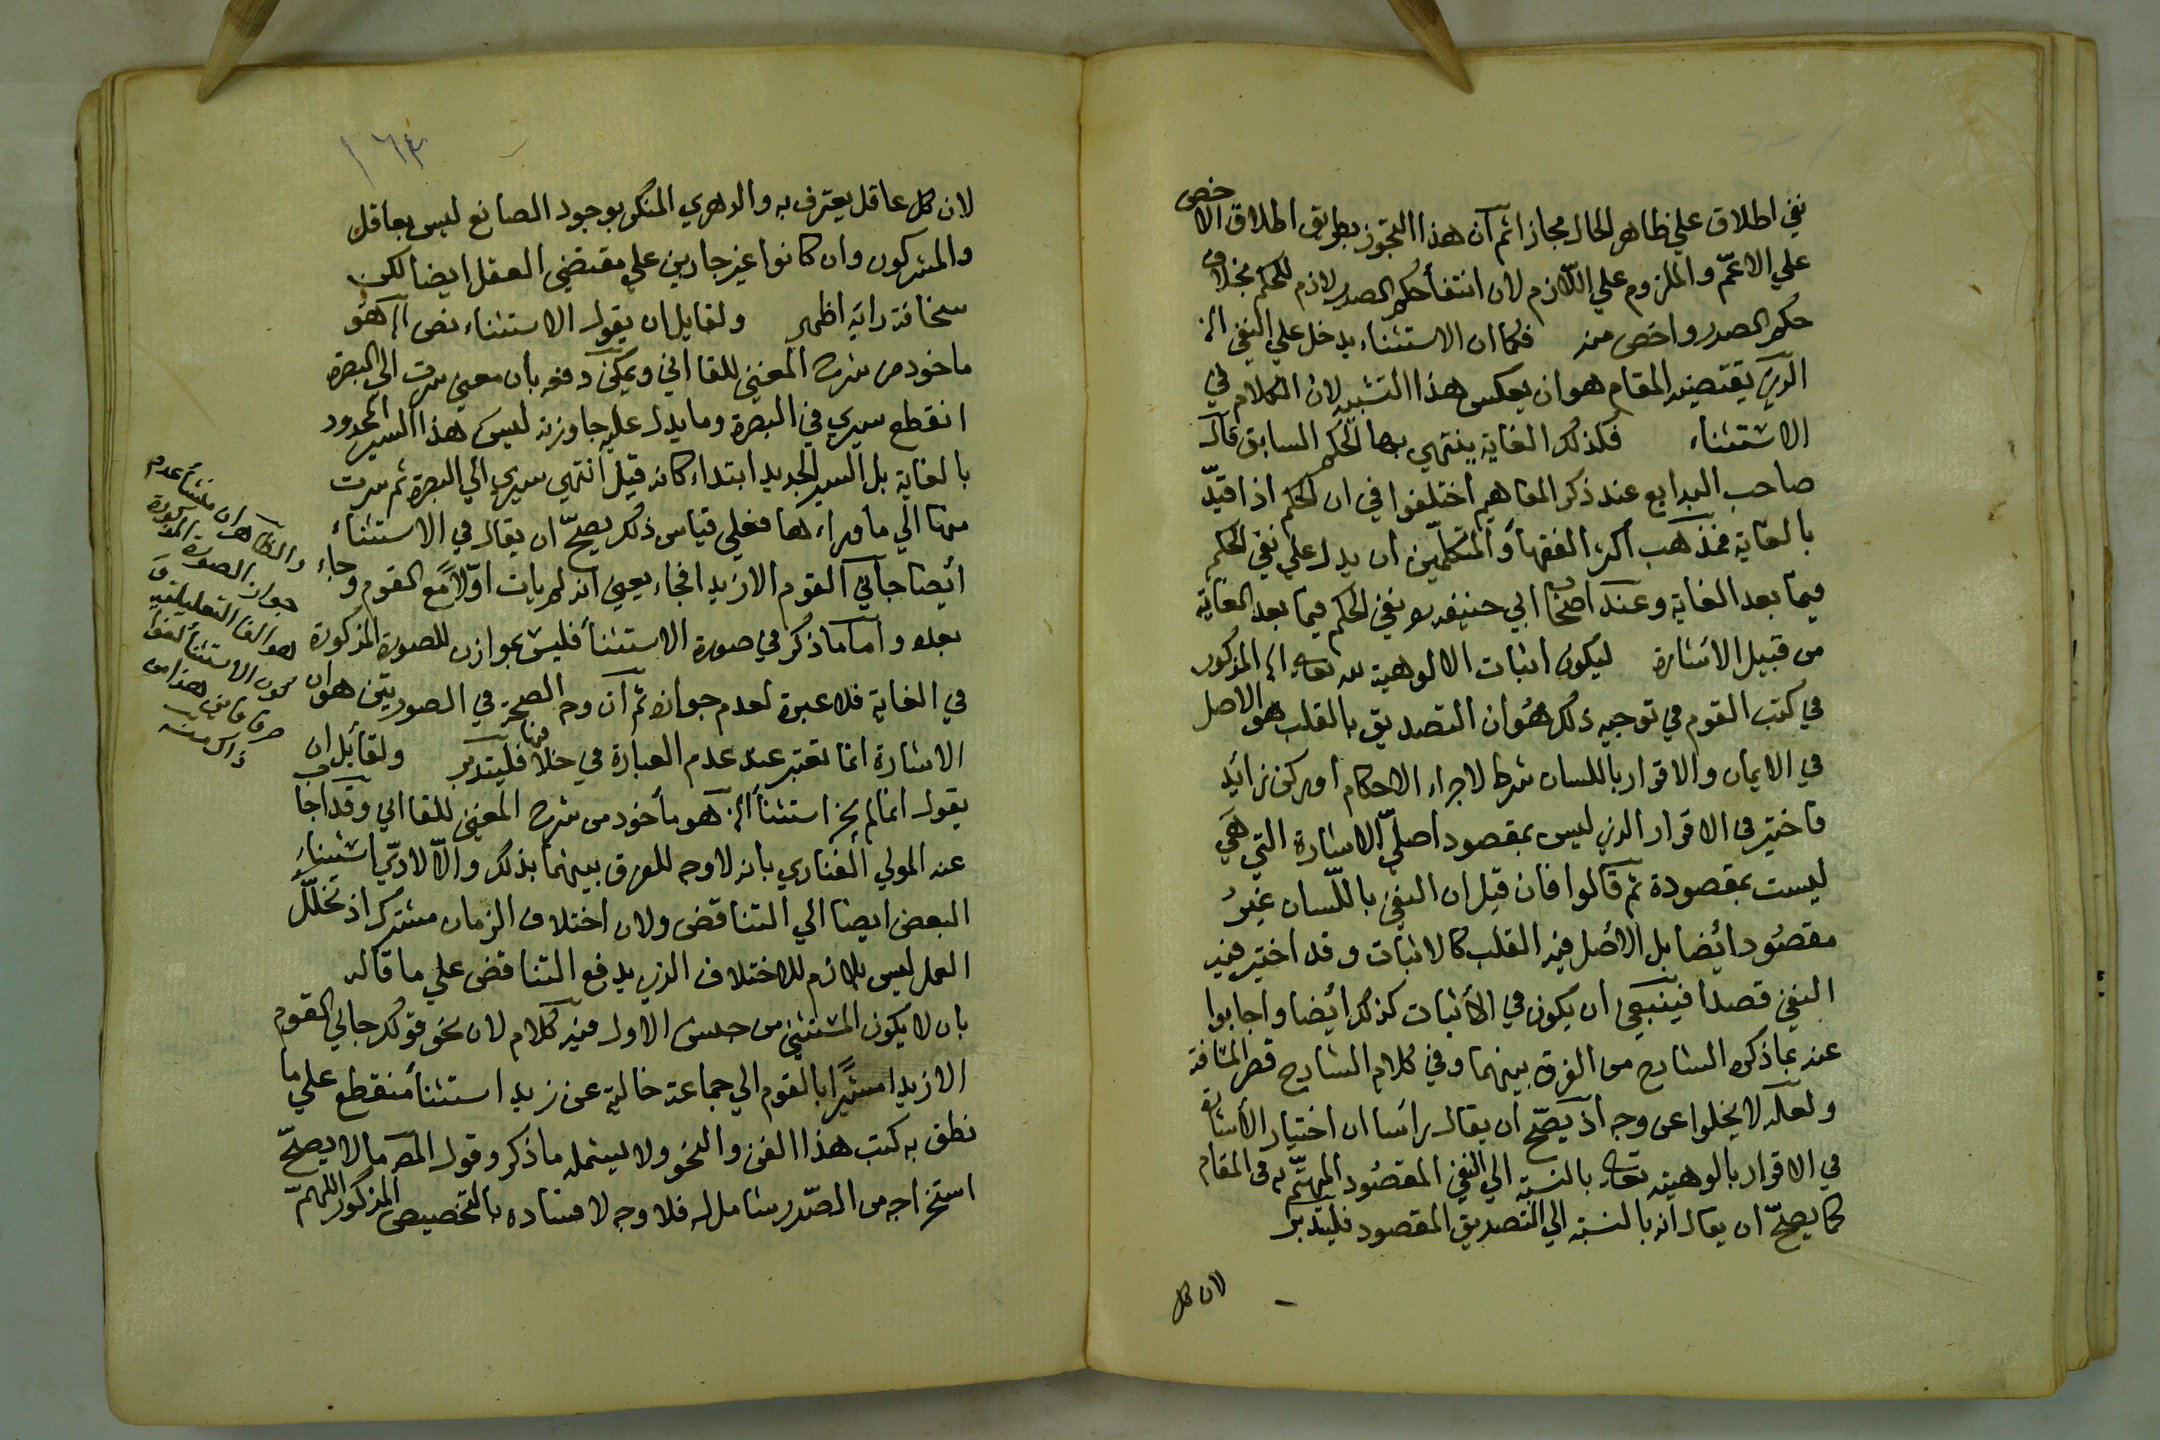 نفي اطلاق علي ظاهر الحال مجازا ثم ان هذا التجوز بطريق اطلاق الاخص
علي الاعم والملزوم علي اللازم لان انتفأ حكم الصدر لازم لحكم بخلاف
حكم الصدر واخص منه فكما ان الاستثناء يدخل علي النفي الخ
الذي يقتضيه المقام هو ان يعكس هذا التشبيه لان الكلام في
الاستثناء فكذلك الغاية ينتهي بها الحكم السابق قال
صاحب البدايع عند ذكر المفاهيم اختلفوا في ان الحكم اذا قيّد
بالغاية فمذهب اكثر الفقهأ والمتكلمين ان يدل علي نفي الحكم
فيما بعد الغاية وعند اصحاب ابي حنيفه هو نفي الحكم فيما بعد الغاية
من قبيل الاشارة ليكون اثبات الالوهية لله تعالى الخ المذكور
في كتب القوم في توجيه ذلك هو ان التصديق بالقلب هو الاصل
في الايمان والاقرار باللسان شرط لاجراء الاحكام او ركن زائد
فاختير في الاقرار الذي ليس بمقصود اصلي الاشارة التي هي
ليست بمقصودة ثم قالوا فان قيل ان النفي باللسان غير
مقصود ايضا بل الاصل فيه القلب كالاثبات وقد اختير فيه
النفي قصدا فينبغي ان يكون في الاثبات كذلك ايضا واجابوا
عنه بما ذكره الشارح من الفرق بينهما وفي كلام الشارح قصر المسافة
ولعله لا يخلوا عن وجه اذ يصح ان يقال رأسا ان اختيار الاشارة
في الاقرار بالوهيته تعالى بالنسبة الي النفي المقصود المهتم به في المقام
كما يصحّ ان يقال انه بالنسبة الي التصديق المقصود فليتدبر
لان كل
١٦٣
لان كل عاقل يعترف به والدهري المنكر بوجود الصانع ليس بعاقل
والمشركون وان كانوا غير جارين علي مقتضي العقل ايضا لكن
سخافة رايه اظهر ولقايل ان يقول الاستثناء نص الخ هو
ماخوذ من شرح المغني للقااني ويمكن دفعه بان معني سرت الي البصرة
انقطع سيري في البصرة وما يدل عليه جاوزته ليس هذا السير المحدود
بالغاية بل السير الجديد ابتداء كانه قيل انتهي سيري الي البصرة ثم سرت
منها الي ما وراءها فعلي قياس ذلك يصحّ ان يقال في الاستثناء
ايضا جأني القوم الا زيدا فجاء يعني انه لم يات اولا مع القوم وجاء
بعده واما ما ذكر في صورة الاستثنأ فليس بموازن للصورة المذكورة
في الغاية فلا عبرة لعدم جوازه ثم ان وجه الصحة في الصورتين هو ان
الاشارة انما تعتبر عند عدم العبارة في خلافها فليتدبر ولقائل ان
يقول انما لم يجز استثنأ الخ هو مأخوذ من شرح المغني للقااني وقد اجاب
عنه المولي الفناري بانه لا وجه للفرق بينهما بذلك والا لادّي استثناء
البعض ايضا الي التناقض ولان اختلاف الزمان مشترك اذ تخلّل
العمل ليس بلازم للاختلاف الذي يدفع التناقض علي ما قاله
بان لا يكون المستثني من جنس الاول فيه كلام لان نحو قولك جاني القوم
الا زيدا مشيرًا بالقوم الي جماعة خالية عن زيد استثنأ منقطع علي ما
نطق به كتب هذا الفن والنحو ولا يشمله ما ذكر وقول المص ما لا يصحّ
استخراجه من الصّدر شامل له فلا وجه لافساده بالتخصيص المذكور اللهمّ
والظاهر ان منشأ عدم
جواز الصورة المذكورة
هو الفا التعليلية
كون الاستثنأ
هذا من
ذاك منه